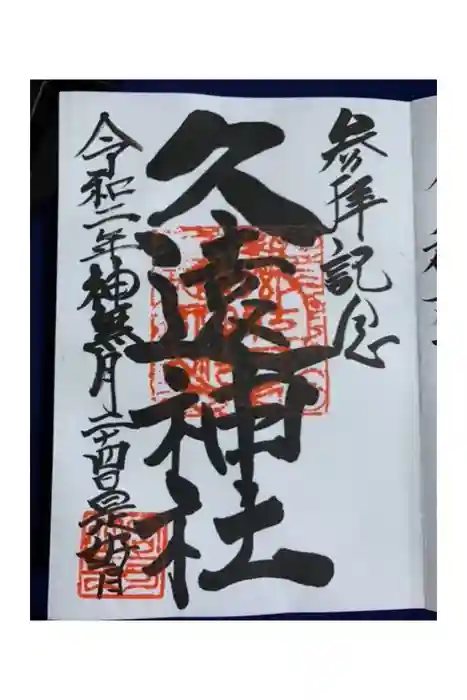 参拝記念
久遠神社
令和二年神無月二十四日